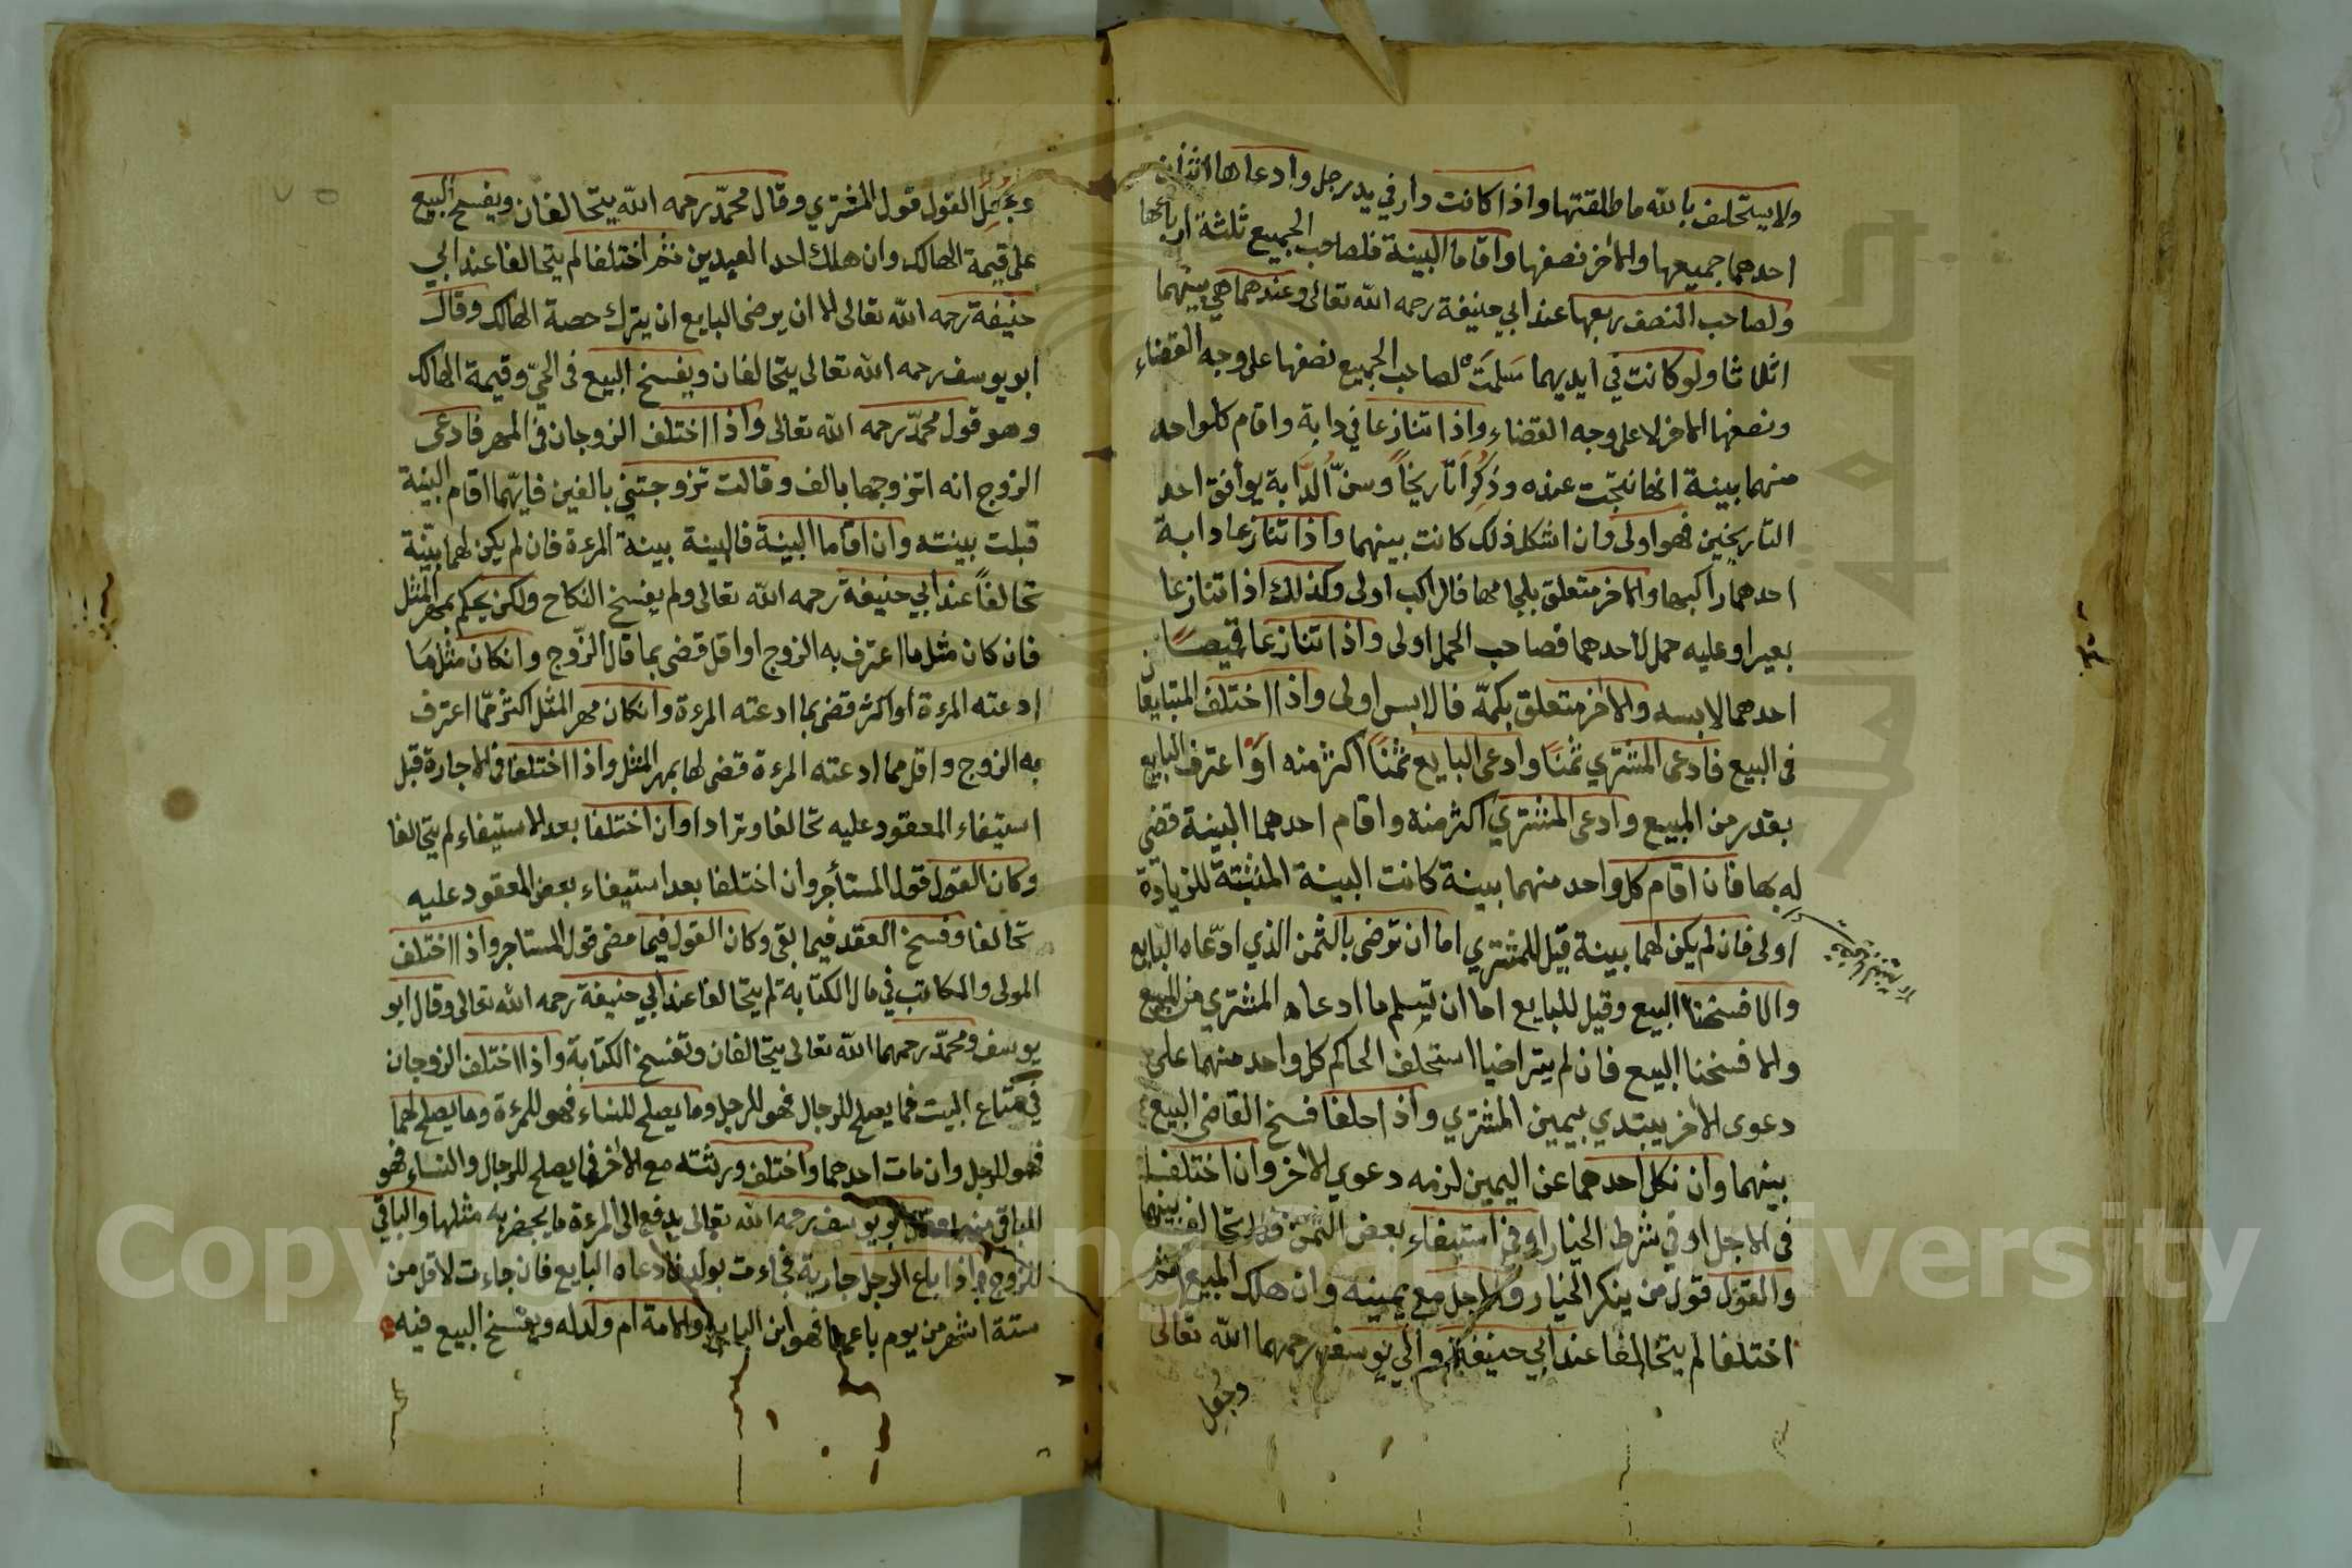 ولا يستحلف بالله ما طلقتها واذا كانت دار في يد رجل وادعاها اثنان
احدهما جميعها والاخر نصفها واقاما البينة فلصاحب الجميع ثلثة ارباعها
ولصاحب النصف ربعها عند ابي حنيفة رحمه الله تعالى وعندهما هي بينهما
اثلاثا ولو كانت في ايديهما سلمت لصاحب الجميع نصفها على وجه القضاء
ونصفها الاخر لا على وجه القضاء واذا تنازعا في دابة واقام كلواحد
منهما بينة انها نتجت عنده وذكرا تاريخا وسن الدابة يوافق احد
التاريخين فهو اولى وان اشكل ذلك كانت بينهما واذا تنازعا دابة
احدهما راكبها والاخر متعلق بلجامها فالراكب اولى وكذلك اذا تنازعا
بعيرا وعليه حمل لاحدهما فصاحب الحمل اولى واذا تنازعا قميصا
احدهما لابسه والاخر متعلق بكمه فالابس اولى واذا اختلف المتبايعان
في البيع فادعى المشتري ثمنا وادعى البايع ثمنا اكثر منه او اعترف البايع
بقدر من المبيع وادعى المشتري اكثر منه واقام احدهما البينة قضى
له بها فان اقام كل واحد منهما بينة كانت البينة المثبتة للزيادة
اولى فان لم يكن لهما بينة قيل للمشتري اما ان ترضى بالثمن الذي ادعاه البايع
والا فسخنا البيع وقيل للبايع اما ان تسلم ما ادعاه المشتري من المبيع
والا فسخنا البيع فان لم يتراضيا استحلف الحاكم كل واحد منهما على
دعوى الاخر يبتدي بيمين المشتري واذا حلفا فسخ القاضي البيع
بينهما وان نكل احدهما عن اليمين لزمه دعوي الاخر وان اختلفا
في الاجل او في شرط الخيار او في استيفاء بعض الثمن فلا تحالف بينهما
والقول قول من ينكر الخيار والاجل مع يمينه وان هلك المبيع ثم
اختلفا لم يتحالفا عند ابي حنيفة وابي يوسف رحمهما الله تعالى
وجعل
وجعل القول قول المشتري وقال محمد رحمه الله يتحالفان ويفسخ البيع
على قيمة الهالك وان هلك احد العبدين ثم اختلفا لم يتحالفا عند ابي
حنيفة رحمه الله تعالى الا ان يرضى البايع ان يترك حصة الهالك وقال
ابو يوسف رحمه الله تعالى يتحالفان ويفسخ البيع في الحي وقيمة الهالك
وهو قول محمد رحمه الله تعالى واذا اختلف الزوجان في المهر فادعى
الزوج انه اتزوجها بالف وقالت تزوجتني بالفين فايهما اقام البينة
قبلت بينته وان اقاما البينة فالبينة بينة المرءة فان لم يكن لهما بينة
تحالفا عند ابي حنيفة رحمه الله تعالى ولم يفسخ النكاح ولكن يحكم بمهر المثل
فان كان مثل ما اعترف به الزوج او اقل قضى بما قال الزوج وانكان مثل ما
ادعته المرءة او اكثر قضى بما ادعته المرءة وانكان مهر المثل اكثر مما اعترف
به الزوج واقل مما ادعته المرءة قضى لها بمهر المثل واذا اختلفا في الاجارة قبل
استيفاء المعقود عليه تحالفا وترادا وان اختلفا بعد الاستيفاء لم يتحالفا
وكان القول قول المستأجر وان اختلفا بعد استيفاء بعض المعقود عليه
تحالفا وفسخ العقد فيما بقي وكان القول فيما مضى قول المستاجر واذا اختلف
المولى والمكاتب في مال الكتابة لم يتحالفا عند ابي حنيفة رحمه الله تعالى وقال ابو
يوسف ومحمد رحمهما الله تعالى يتحالفان وتفسخ الكتابة واذا اختلف الزوجان
في متاع البيت فما يصلح للرجال فهو للرجل وما يصلح للنساء فهو للمرءة وما يصلح لهما
فهو للرجل وان مات احدهما واختلف ورثته مع الاخر فما يصلح للرجال والنساء فهو
للباقي منهما وقال ابو يوسف رحمه الله تعالى يدفع الى المرءة ما يجهز به مثلها والباقي
للزوج واذا باع الرجل جارية فجاءت بولد فادعاه البايع فان جاءت لاقل من
ستة اشهر من يوم باعها فهو ابن البايع والامة ام ولد له ويفسخ البيع فيه
Copyright © King Saud University